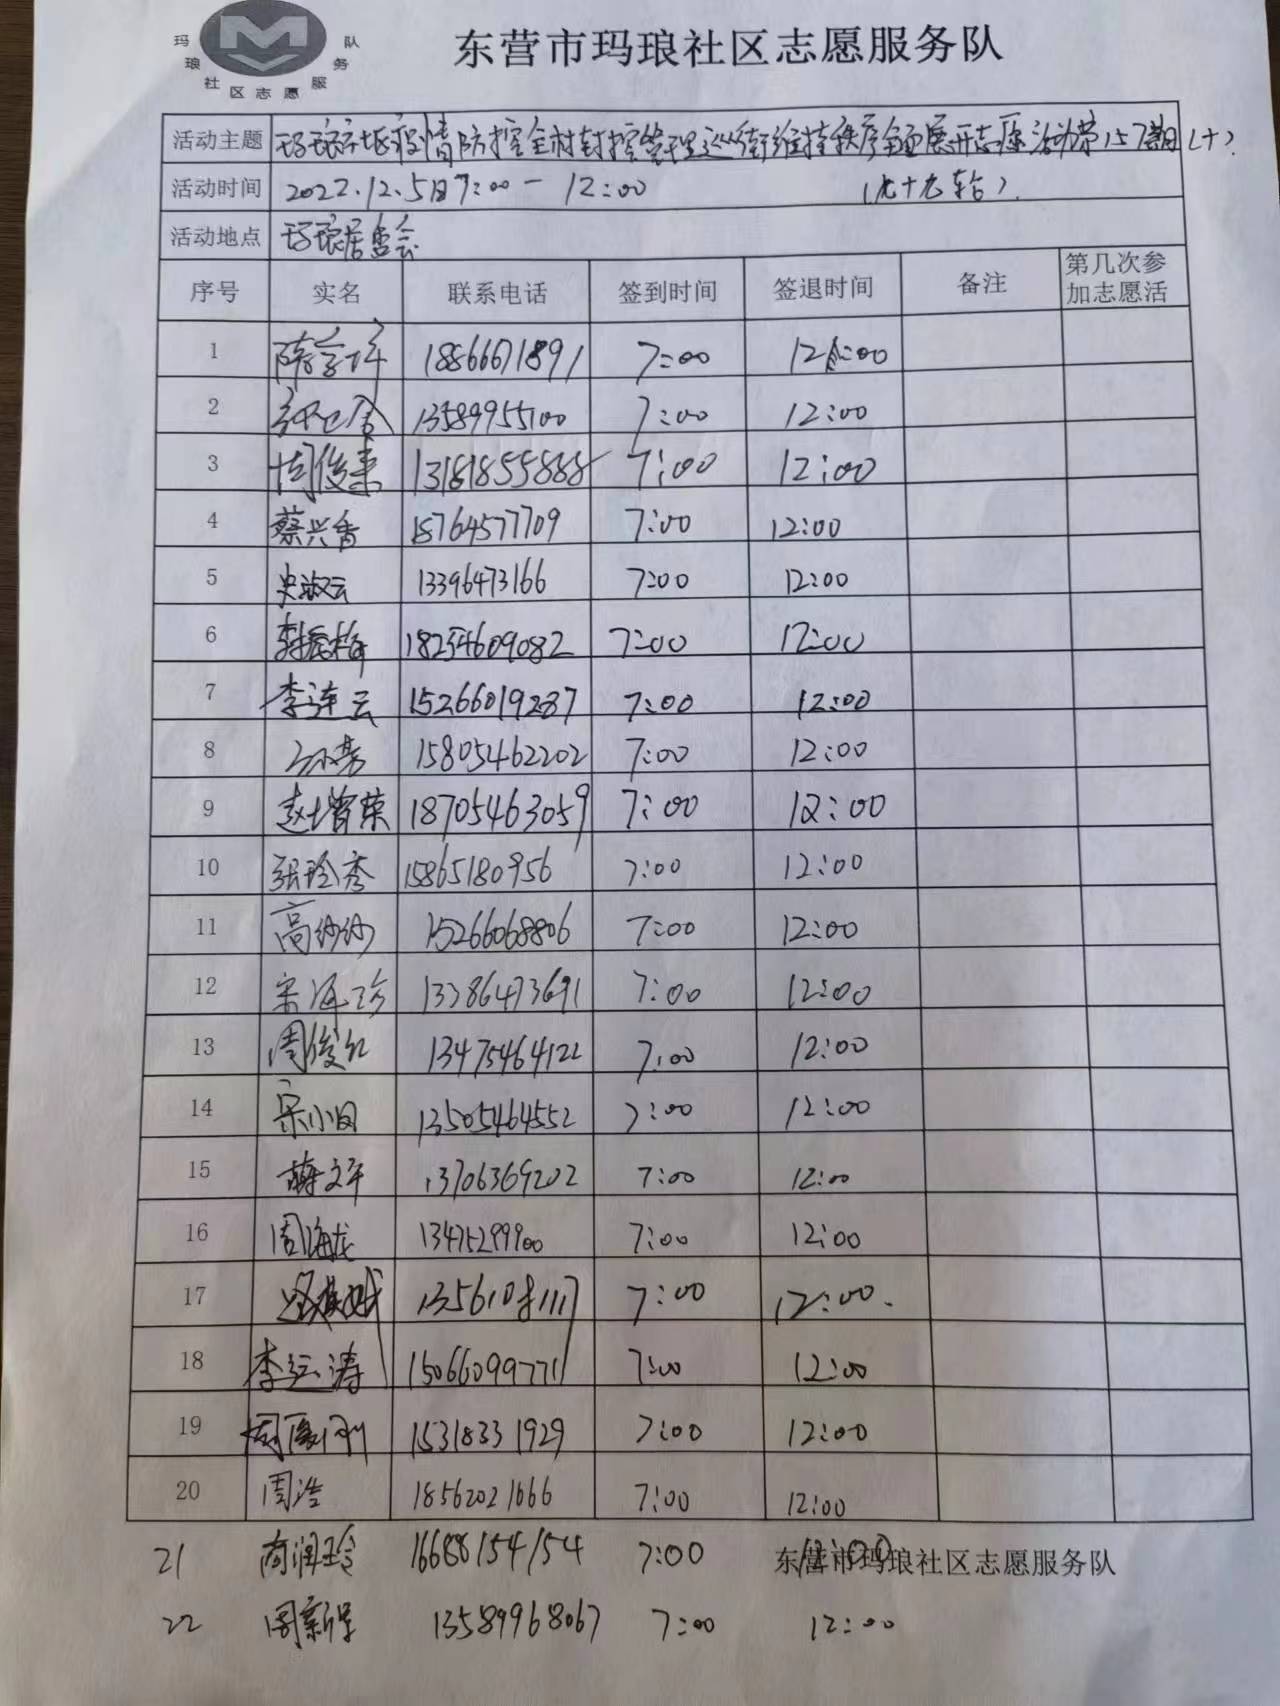 玛琅社区志愿服务队
东营市玛琅社区志愿服务队
活动主题 玛琅社区疫情防控全村封控管理巡逻街维持秩序全面展开志愿活动第157期(十).
活动时间 2022.12.5日7:00-12:00 (九十九转)
活动地点 玛琅居委会
序号 实名 联系电话 签到时间 签退时间 备注 第几次参加志愿活
1 18866671891 7:00 12:00
2 13589955100 7:00 12:00
3 周俊素 13181855888 7:00 12:00
4 蔡兴香 18764577709 7:00 12:00
5 史淑云 13396473166 7:00 12:00
6 18254609082 7:00 12:00
7 李连云 15266019287 7:00 12:00
8 15805462202 7:00 12:00
9 赵增荣 18705463059 7:00 12:00
10 张玲秀 15865180956 7:00 12:00
11 高纱纱 15266068806 7:00 12:00
12 宋海珍 13386473691 7:00 12:00
13 周俊红 13475464122 7:00 12:00
14 宋小因 13505464552 7:00 12:00
15 薛文平 13706369202 7:00 12:00
16 周海龙 13475299900 7:00 12:00
17 13561081117 7:00 12:00.
18 李运涛 15066099771 7:00 12:00
19 15318331929 7:00 12:00
20 周浩 18562021666 7:00 12:00
21 商润玲 16688154154 7:00 12:00
东营市玛琅社区志愿服务队
22 周新学 13589968067 7:00 12:00